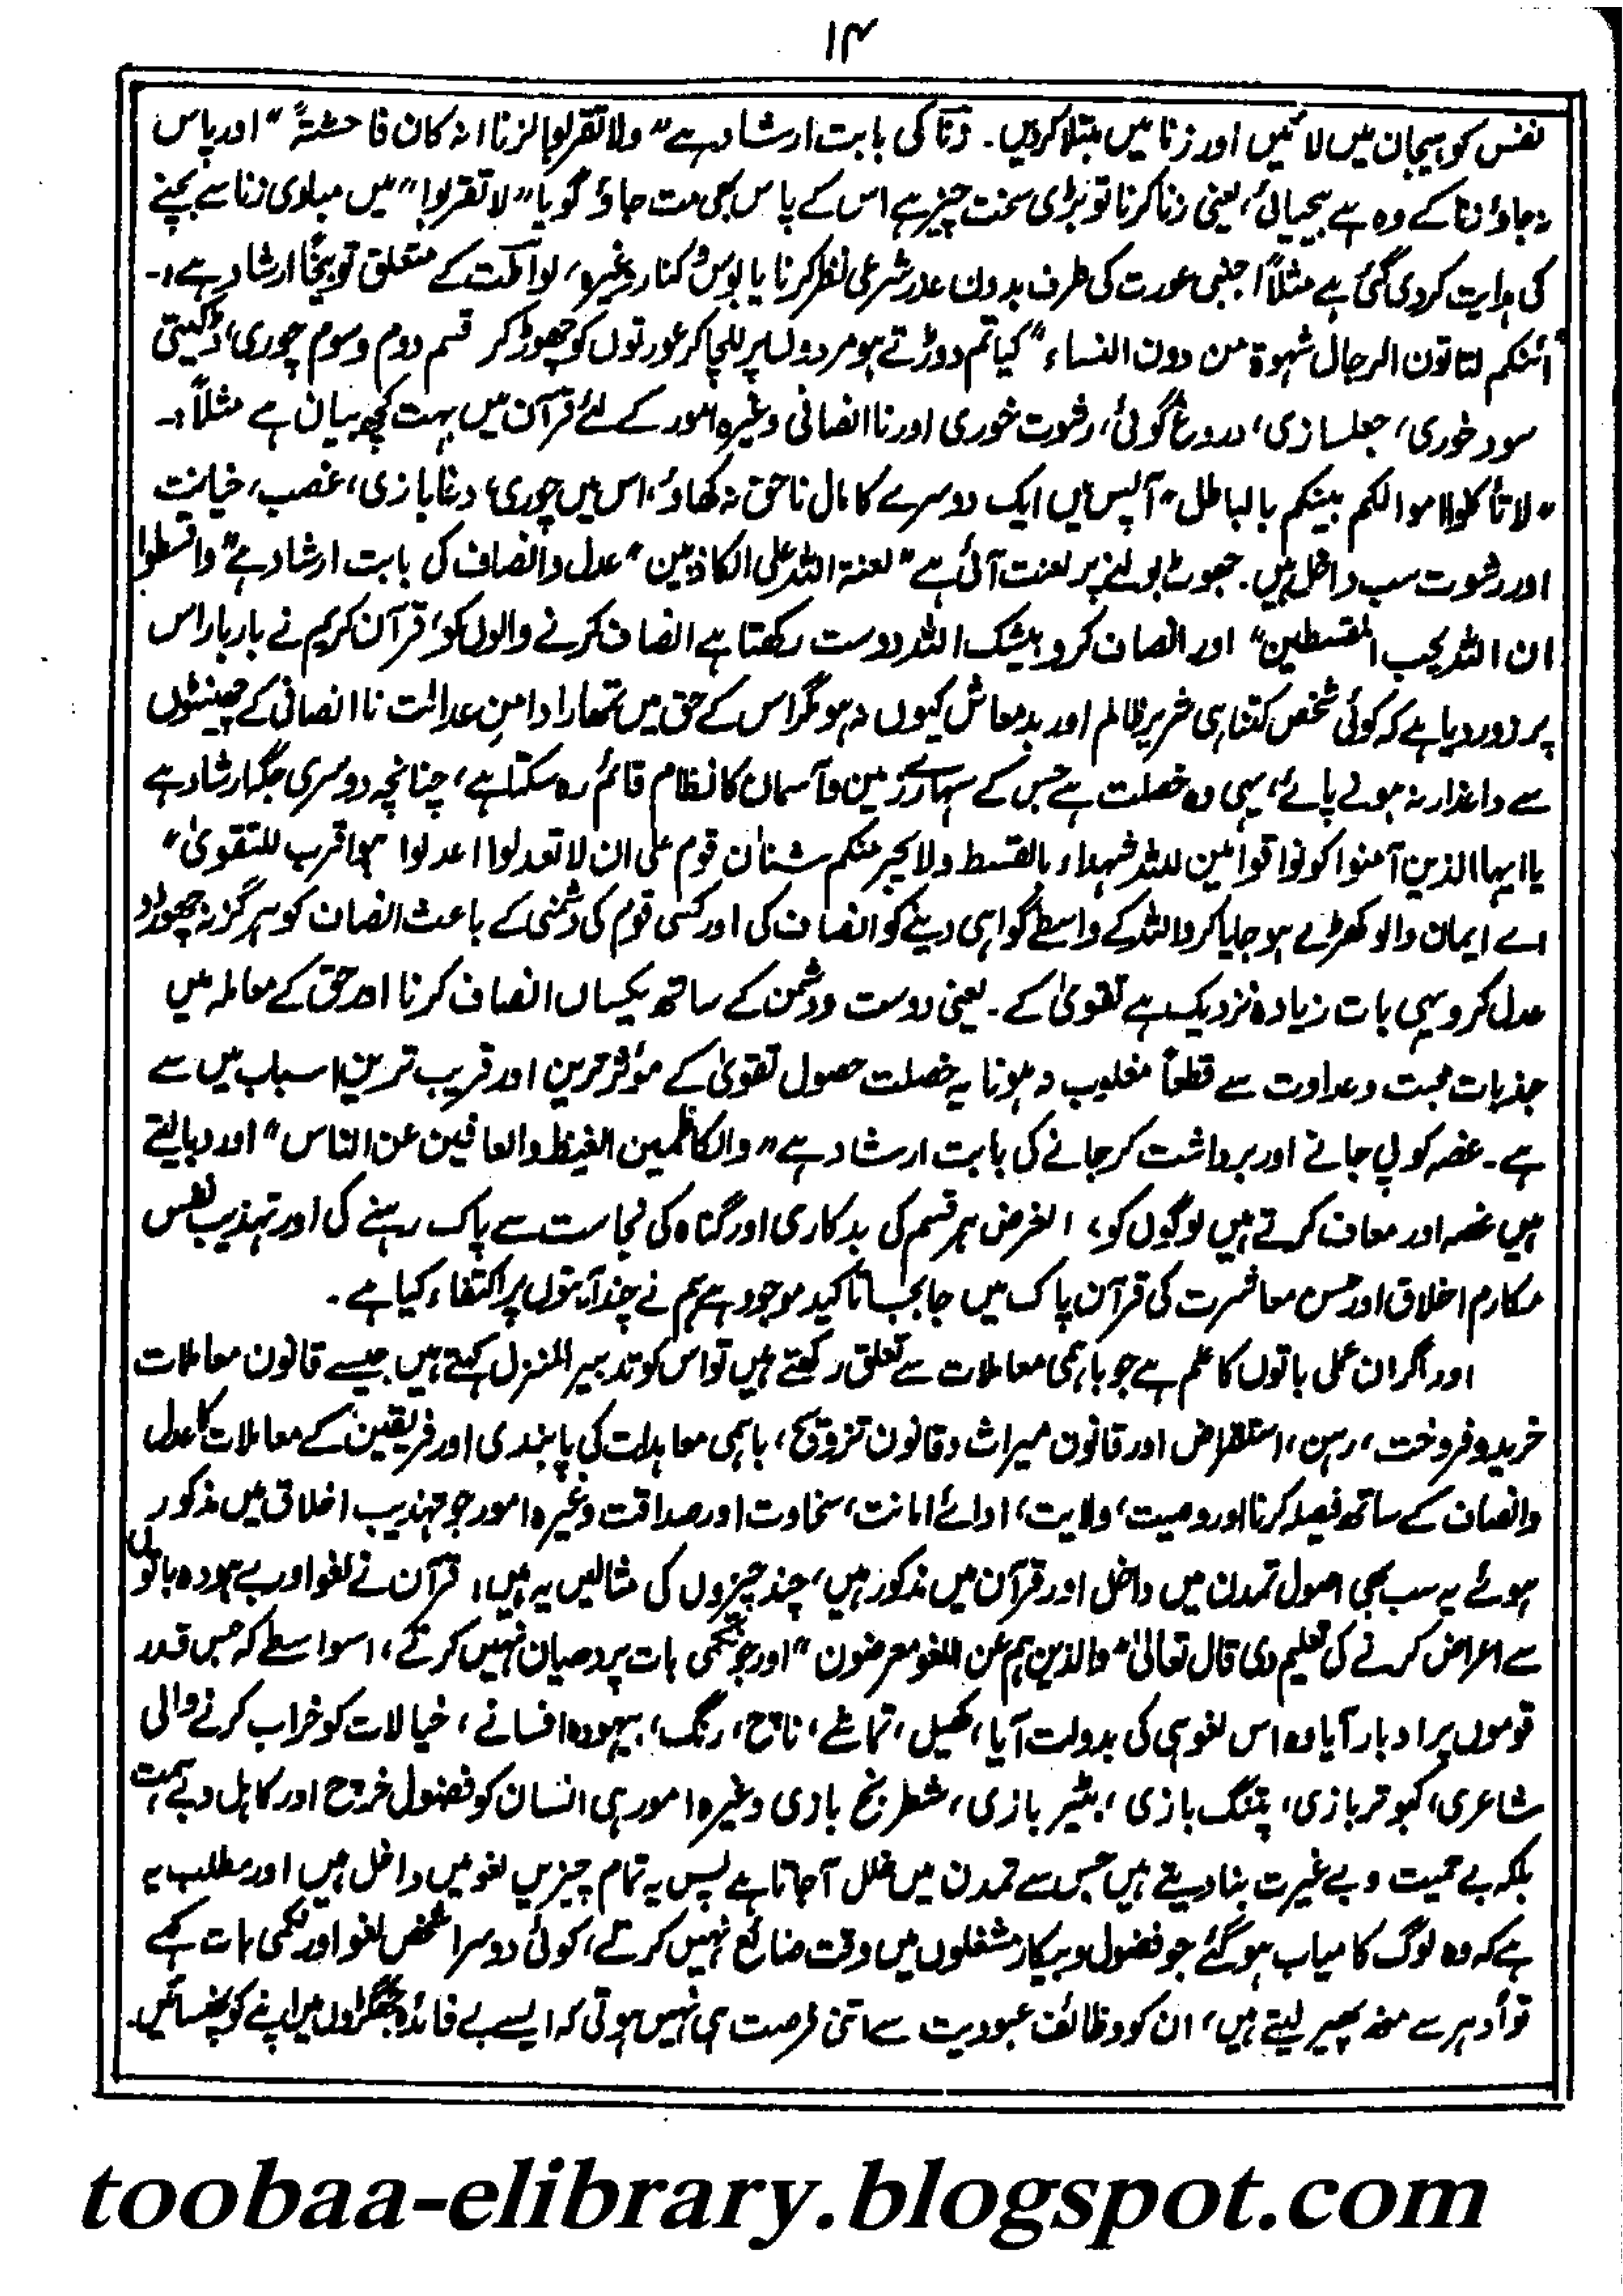 ۱۴
نفس کو ہیجان میں لائیں اور زنا میں مبتلا کردیں۔ زنا کی بابت ارشاد ہے "ولا تقربوا الزنا انہ کان فاحشۃً" اور پاس
نہ جاؤ زنا کے وہ ہے بیحیائی، یعنی زنا کرنا تو بڑی سخت چیز ہے اس کے پاس بھی مت جاؤ گویا "لا تقربوا" میں مبادی زنا سے بچنے
کی ہدایت کردی گئی ہے مثلاً اجنبی عورت کی طرف بدون عذر شرعی نظر کرنا یا بوس و کنار وغیرہ، لواطت کے متعلق توبیخاً ارشاد ہے:۔
"أئنکم لتاتون الرجال شہوۃ من دون النساء" کیا تم دوڑتے ہو مردوں پر للچا کر عورتوں کو چھوڑ کر قسم دوم و سوم چوری، ڈکیتی
سود خوری، جعلسازی، دروغ گوئی، رشوت خوری اور ناانصافی وغیرہ امور کے لئے قرآن میں بہت کچھ بیان ہے مثلاً:۔
"لا تأکلوا اموالکم بینکم بالباطل" آپس میں ایک دوسرے کا مال ناحق نہ کھاؤ، اس میں چوری، دغابازی، غصب، خیانت
اور رشوت سب داخل ہیں۔ جھوٹ بولنے پر لعنت آئی ہے "لعنۃ اللہ علی الکاذبین" عدل و انصاف کی بابت ارشاد ہے "واقسطوا
ان اللہ یحب المقسطین" اور انصاف کرو بیشک اللہ دوست رکھتا ہے انصاف کرنے والوں کو، قرآن کریم نے بار بار اس
پر زور دیا ہے کہ کوئی شخص کتنا ہی شریر ظالم اور بدمعاش کیوں نہ ہو مگر اس کے حق میں تمھارا دامنِ عدالت ناانصافی کے چھینٹوں
سے داغدار نہ ہونے پائے، یہی وہ خصلت ہے جس کے سہارے زمین و آسمان کا نظام قائم رہ سکتا ہے، چنانچہ دوسری جگہ ارشاد ہے
یا ایہا الذین آمنوا کونوا قوامین للہ شہداء بالقسط ولا یجرمنکم شنان قوم علی ان لا تعدلوا اعدلوا ہوا قرب للتقویٰ"
اے ایمان والو کھڑے ہو جایا کرو اللہ کے واسطے گواہی دینے کو انصاف کی اور کسی قوم کی دشمنی کے باعث انصاف کو ہرگز نہ چھوڑو
عدل کرو یہی بات زیادہ نزدیک ہے تقویٰ کے۔ یعنی دوست و دشمن کے ساتھ یکساں انصاف کرنا اور حق کے معاملہ میں
جذبات محبت و عداوت سے قطعاً مغلوب نہ ہونا یہ خصلت حصول تقویٰ کے مؤثر ترین اور قریب ترین اسباب میں سے
ہے۔ غصہ کو پی جانے اور برداشت کر جانے کی بابت ارشاد ہے "والکاظمین الغیظ والعافین عن الناس" اور دبا لیتے
ہیں غصہ اور معاف کرتے ہیں لوگوں کو، الغرض ہر قسم کی بدکاری اور گناہ کی نجاست سے پاک رہنے کی اور تہذیب نفس
مکارم اخلاق اور حسن معاشرت کی قرآن پاک میں جابجا تاکید موجود ہے ہم نے چند آیتوں پر اکتفاء کیا ہے۔
اور اگر ان عملی باتوں کا علم ہے جو باہمی معاملات سے تعلق رکھتے ہیں تو اس کو تدبیر المنزل کہتے ہیں جیسے قانون معاملات
خرید و فروخت، رہن، استقراض اور قانون میراث و قانون تزویج، باہمی معاہدات کی پابندی اور فریقین کے معاملات کا عدل
وانصاف کے ساتھ فیصلہ کرنا اور وصیت، ولایت، ادائے امانت، سخاوت اور صداقت وغیرہ امور جو تہذیب اخلاق میں مذکور
ہوئے یہ سب بھی اصول تمدن میں داخل اور قرآن میں مذکور ہیں، چند چیزوں کی مثالیں یہ ہیں، قرآن نے لغو اور بے ہودہ باتوں
سے اعراض کرنے کی تعلیم دی قال تعالیٰ "والذین ہم عن اللغو معرضون" اور جو نکمی بات پر دھیان نہیں کرتے، اسواسطے کہ جس قدر
قوموں پر ادبار آیا وہ اس لغو ہی کی بدولت آیا، کھیل، تماشے، ناچ، رنگ، بیہودہ افسانے، خیالات کو خراب کرنے والی
شاعری، کبوتر بازی، پتنگ بازی، بٹیر بازی، شطرنج بازی وغیرہ امور ہی انسان کو فضول خرچ اور کاہل و بے ہمت
بلکہ بے حمیت و بے غیرت بنا دیتے ہیں جس سے تمدن میں خلل آجاتا ہے پس یہ تمام چیزیں لغو میں داخل ہیں اور مطلب یہ
ہے کہ وہ لوگ کامیاب ہوگئے جو فضول و بیکار مشغلوں میں وقت ضائع نہیں کرتے، کوئی دوسرا شخص لغو اور نکمی بات کہے
تو اُدہر سے منہ پھیر لیتے ہیں، ان کو وظائف عبودیت سے اتنی فرصت ہی نہیں ہوتی کہ ایسے بے فائدہ جھگڑوں میں اپنے کو پھنسائیں۔
toobaa-elibrary.blogspot.com